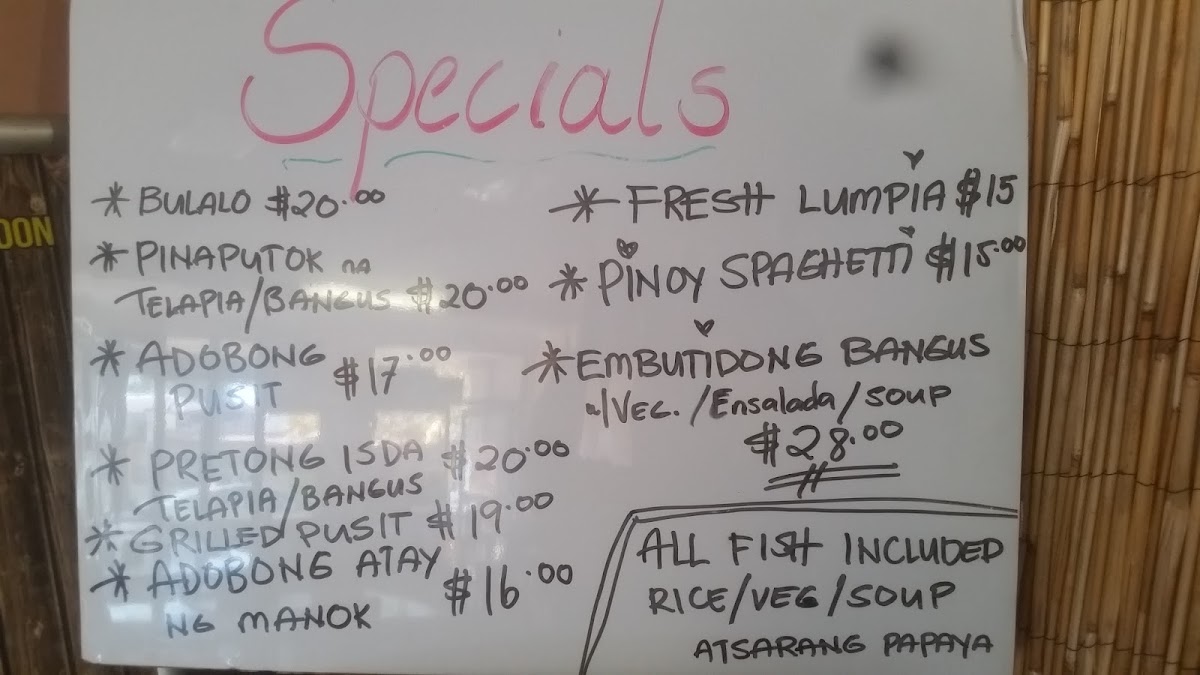 Specials
* BULALO $20.00
* PINAPUTOK na
TELAPIA/BANGUS $20.00
* ADOBONG
PUSIT $17.00
* PRETONG ISDA $20.00
TELAPIA/BANGUS
* GRILLED PUSIT $19.00
* ADOBONG ATAY
NG MANOK $16.00
* FRESH LUMPIA $15
* PINOY SPAGHETTI $15.00
* EMBUTIDONG BANGUS
w/VEG./Ensalada/SOUP
$28.00
ALL FISH INCLUDED
RICE/VEG/SOUP
ATSARANG PAPAYA
OON